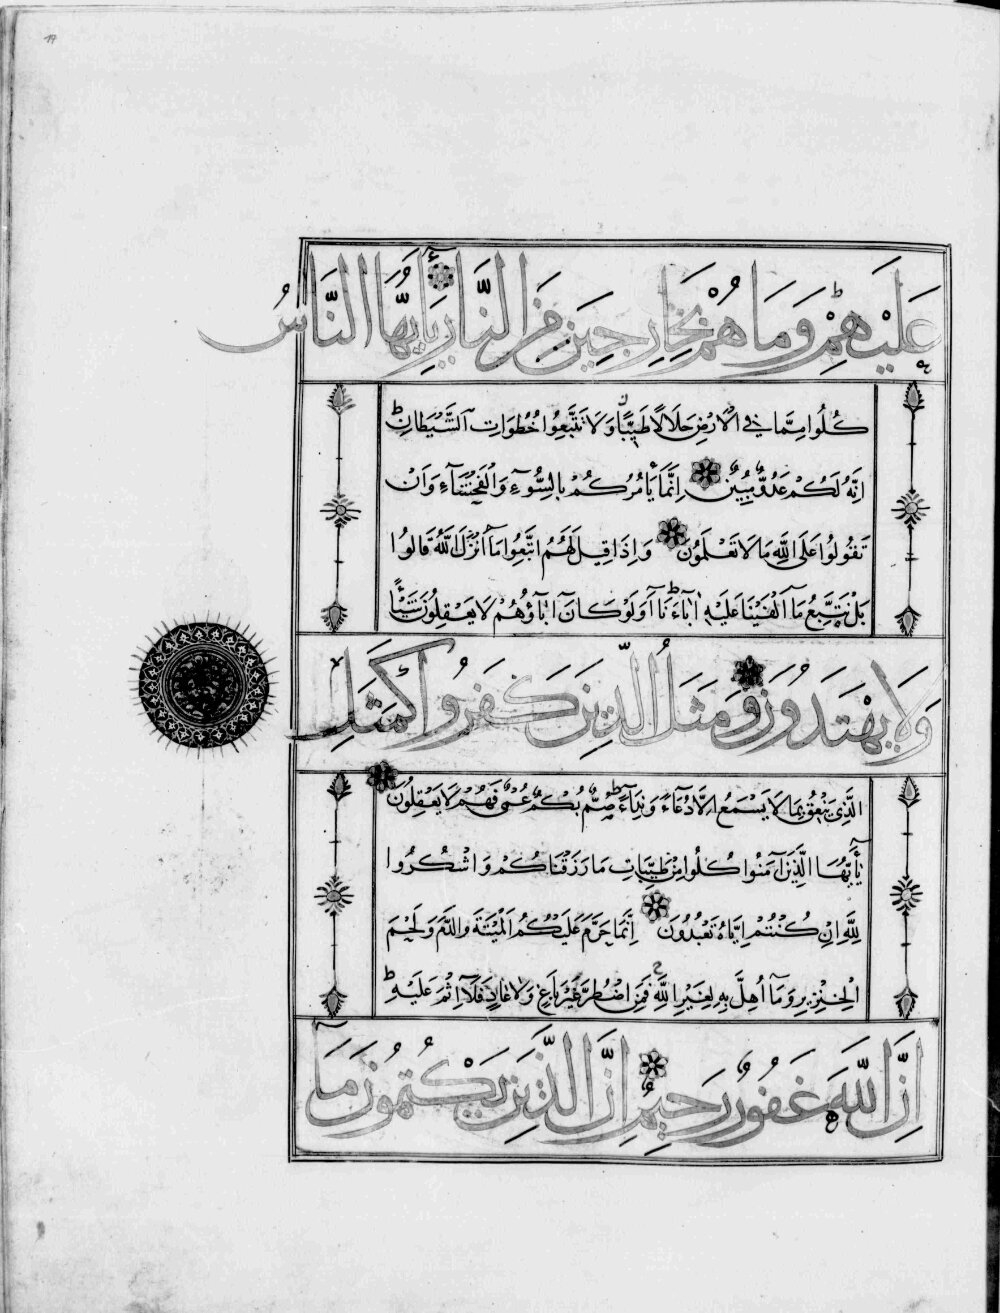 ١٧
عَلَيْهِمْ وَمَا هُمْ بِخَارِجِينَ مِنَ النَّارِ يَٰٓأَيُّهَا النَّاسُ
كُلُوا مِمَّا فِي الْاَرْضِ حَلَالًا طَيِّبًا وَلَا تَتَّبِعُوا خُطُوَاتِ الشَّيْطَانِ ط
اِنَّهُ لَكُمْ عَدُوٌّ مُبِينٌ اِنَّمَا يَأْمُرُكُمْ بِالسُّوٓءِ وَالْفَحْشَآءِ وَاَنْ
تَقُولُوا عَلَى اللَّهِ مَا لَا تَعْلَمُونَ وَاِذَا قِيلَ لَهُمُ اتَّبِعُوا مَآ اَنْزَلَ اللَّهُ قَالُوا
بَلْ نَتَّبِعُ مَآ اَلْفَيْنَا عَلَيْهِ اٰبَآءَنَا ط اَوَلَوْ كَانَ اٰبَآؤُهُمْ لَا يَعْقِلُونَ شَيْئًا
وَلَا يَهْتَدُونَ وَمَثَلُ الَّذِينَ كَفَرُوا كَمَثَلِ
الَّذِي يَنْعِقُ بِمَا لَا يَسْمَعُ اِلَّا دُعَآءً وَنِدَآءً ط صُمٌّ بُكْمٌ عُمْيٌ فَهُمْ لَا يَعْقِلُونَ
يَٰٓأَيُّهَا الَّذِينَ اٰمَنُوا كُلُوا مِنْ طَيِّبَاتِ مَا رَزَقْنَاكُمْ وَاشْكُرُوا
لِلَّهِ اِنْ كُنْتُمْ اِيَّاهُ تَعْبُدُونَ اِنَّمَا حَرَّمَ عَلَيْكُمُ الْمَيْتَةَ وَالدَّمَ وَلَحْمَ
الْخِنْزِيرِ وَمَآ اُهِلَّ بِهِ لِغَيْرِ اللَّهِ ج فَمَنِ اضْطُرَّ غَيْرَ بَاغٍ وَلَا عَادٍ فَلَآ اِثْمَ عَلَيْهِ ط
اِنَّ اللَّهَ غَفُورٌ رَحِيمٌ اِنَّ الَّذِينَ يَكْتُمُونَ مَآ